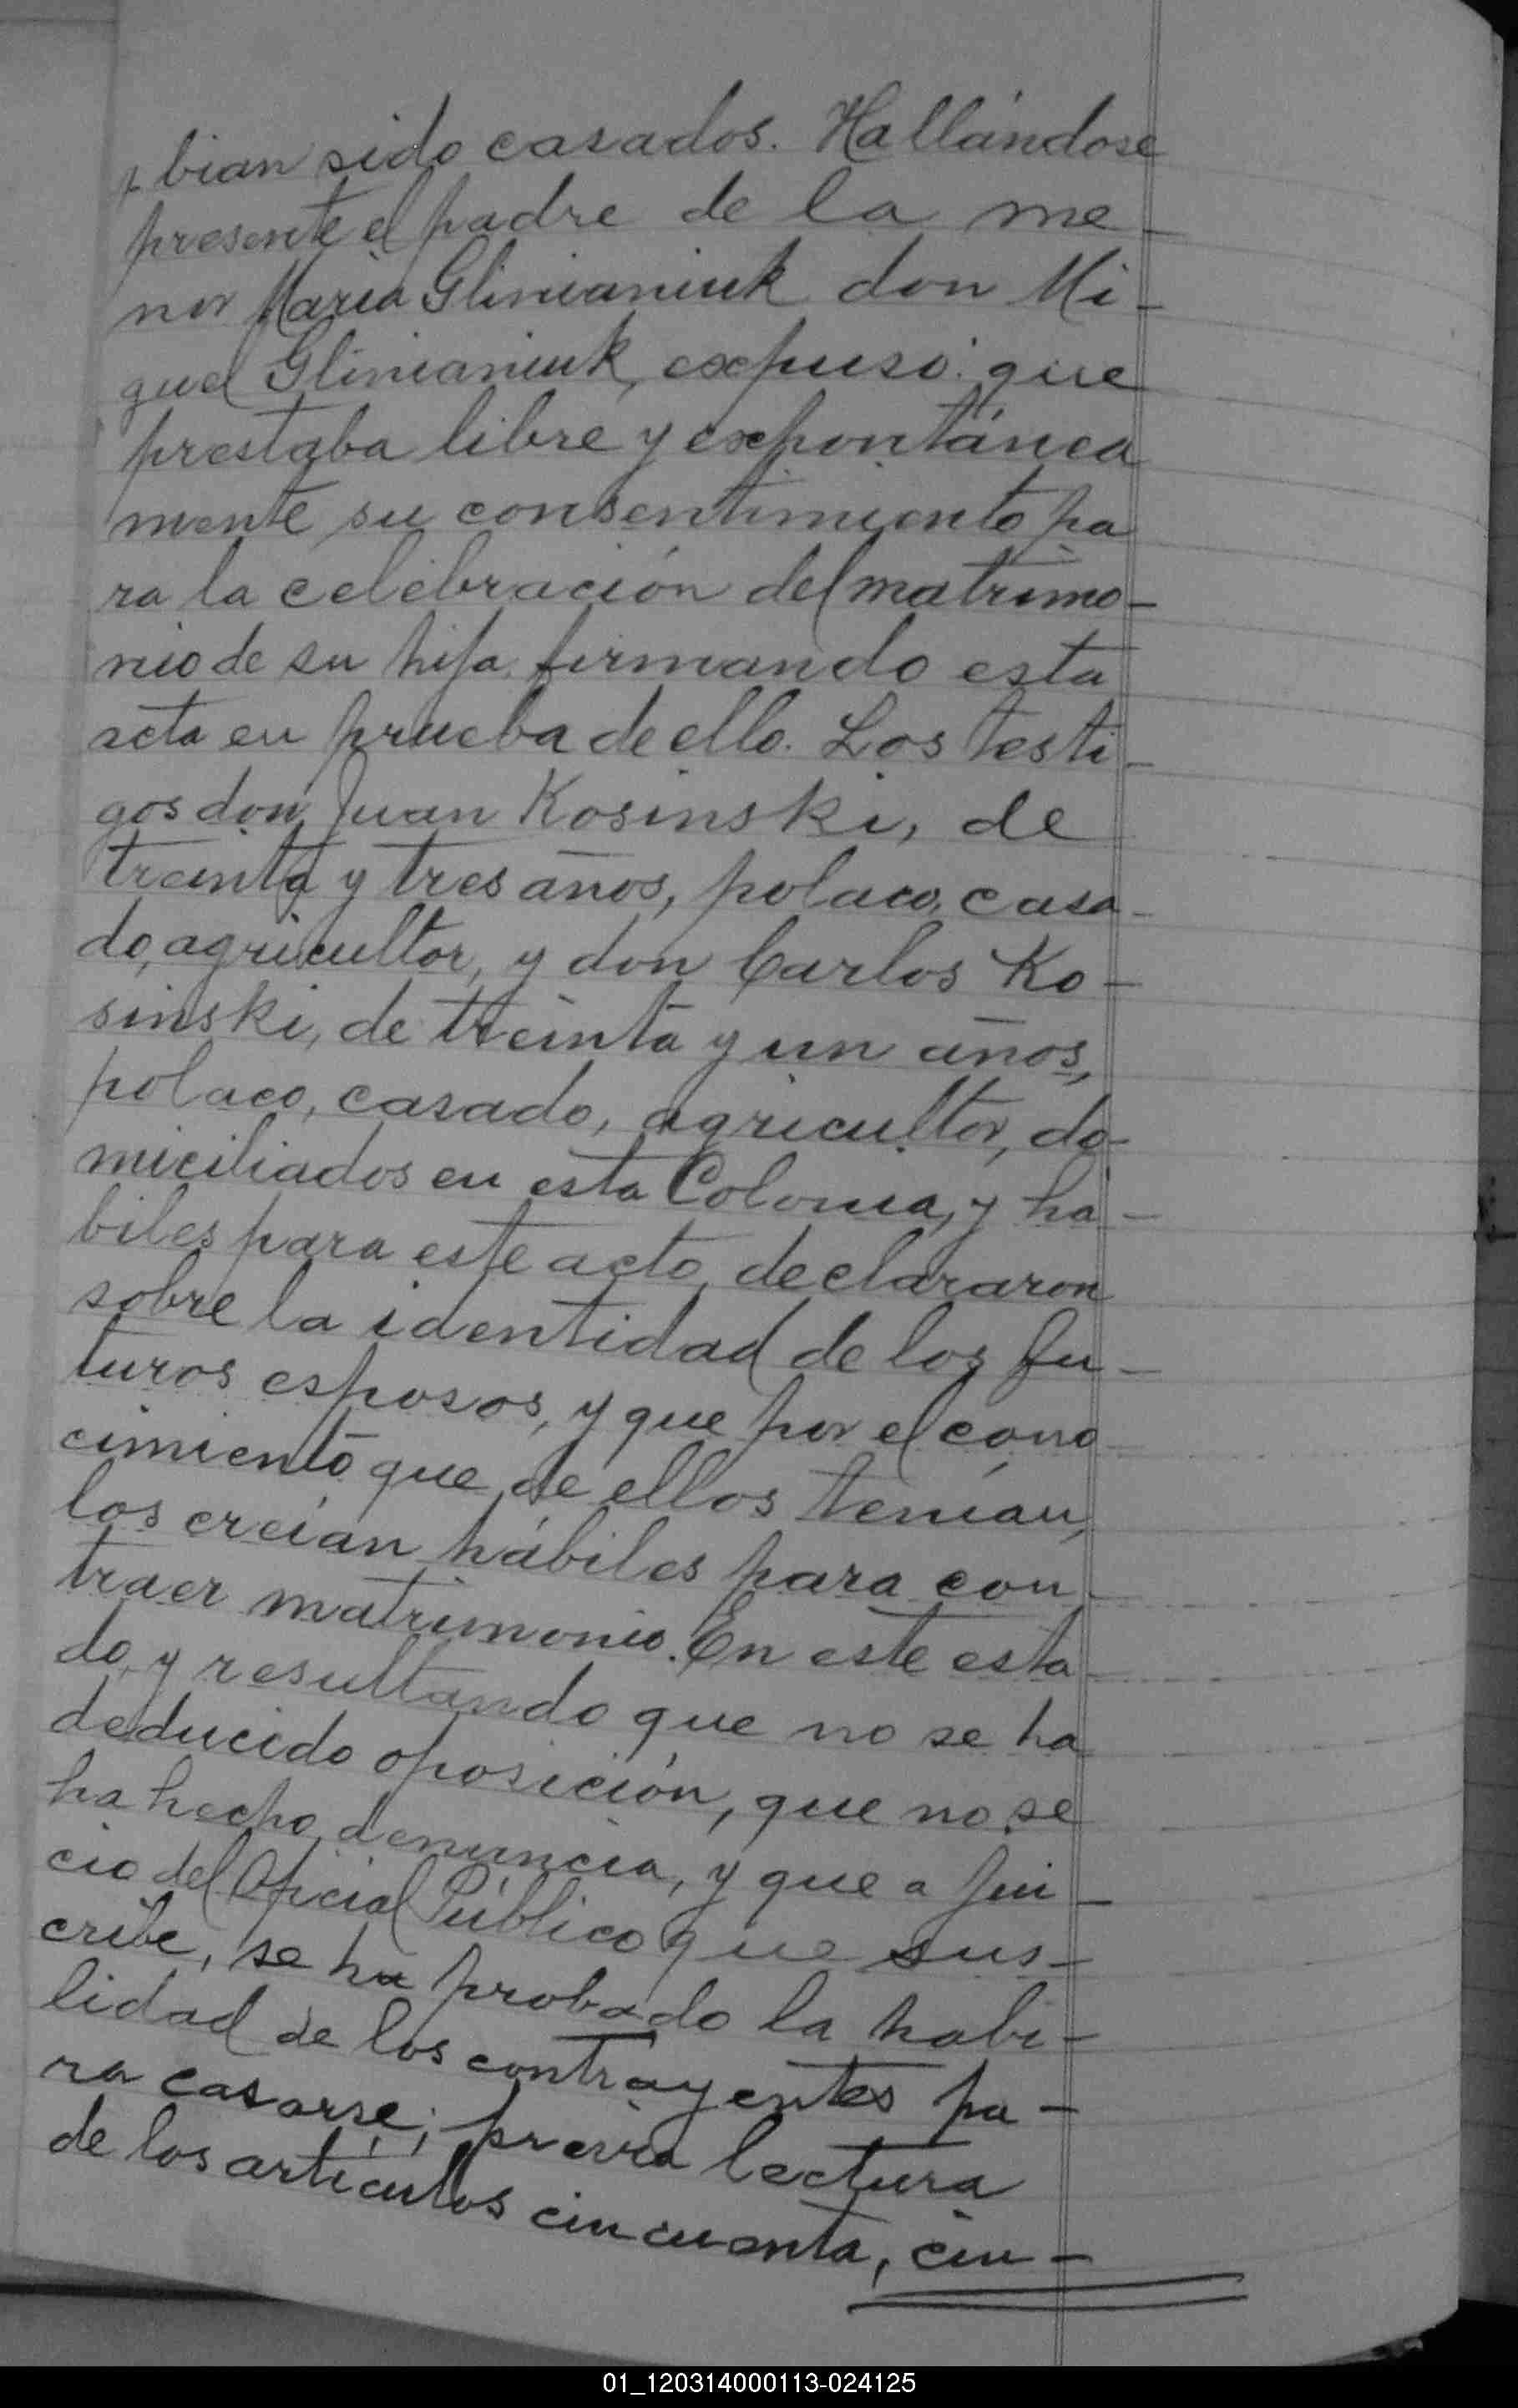 bian sido casados. Hallándose
presente el padre de la me-
nor María Glinianiuk don Mi-
guel Glinianiuk, expuso: que
prestaba libre y expontánea
mente su consentimiento pa
ra la celebración del matrimo-
nio de su hija, firmando esta
acta en prueba de ello. Los testi-
gos don Juan Kosinski, de
treinta y tres años, polaco, casa-
do, agricultor, y don Carlos Ko-
sinski, de treinta y un años,
polaco, casado, agricultor, do-
miciliados en esta Colonia, y há-
biles para este acto, declararon
sobre la identidad de los fu-
turos esposos, y que por el cono-
cimiento que de ellos tenían,
los creían hábiles para con-
traer matrimonio. En este esta-
do, y resultando que no se ha
deducido oposición, que no se
ha hecho denuncia, y que a jui-
cio del Oficial Público que sus-
cribe, se ha probado la habi-
lidad de los contrayentes pa-
ra casarse; previa lectura
de los artículos cincuenta, cin-
01_120314000113-024125